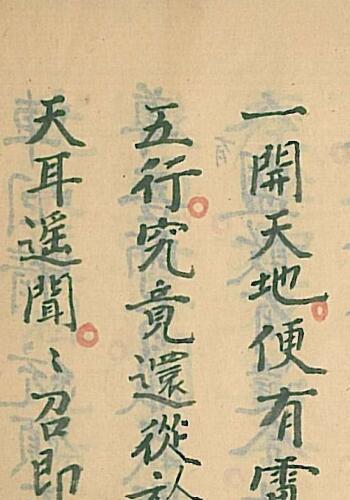 一開天地便有雷
五行究竟還從
天耳遥聞〻召即